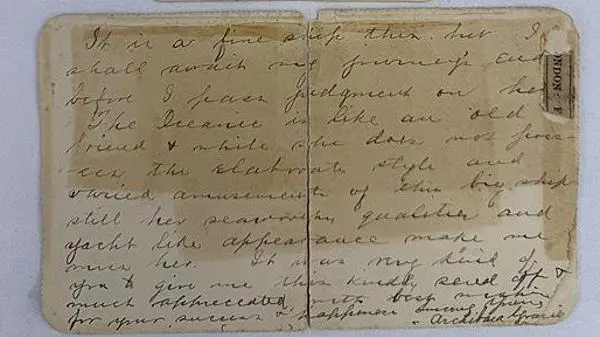 It is a fine ship this but I
shall await my journey's end
before I pass judgment on her
The Oceanic is like an old
friend & while she does not poss-
ess the elaborate style and
varied amusements of this big ship
still her seaworthy qualities and
yacht like appearance make me
miss her. It was very kind of
you to give me this kindly send off &
much appreciated with best wishes
for your success & happiness Sincerely Yours
Archibald Gracie
ONDON